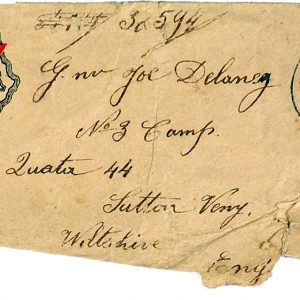 3d594
Gnr Joe Delaney
No 3 Camp.
Quata 44
Sutton Veny.
Wiltshire
Eng